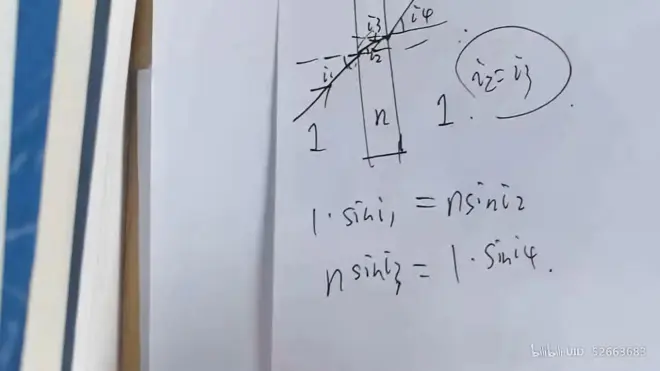 i3 i4
i1 i2
i2=i3
1 n 1
1·sini1 = nsini2
nsini3 = 1·sini4.
bilibili UID 52663683